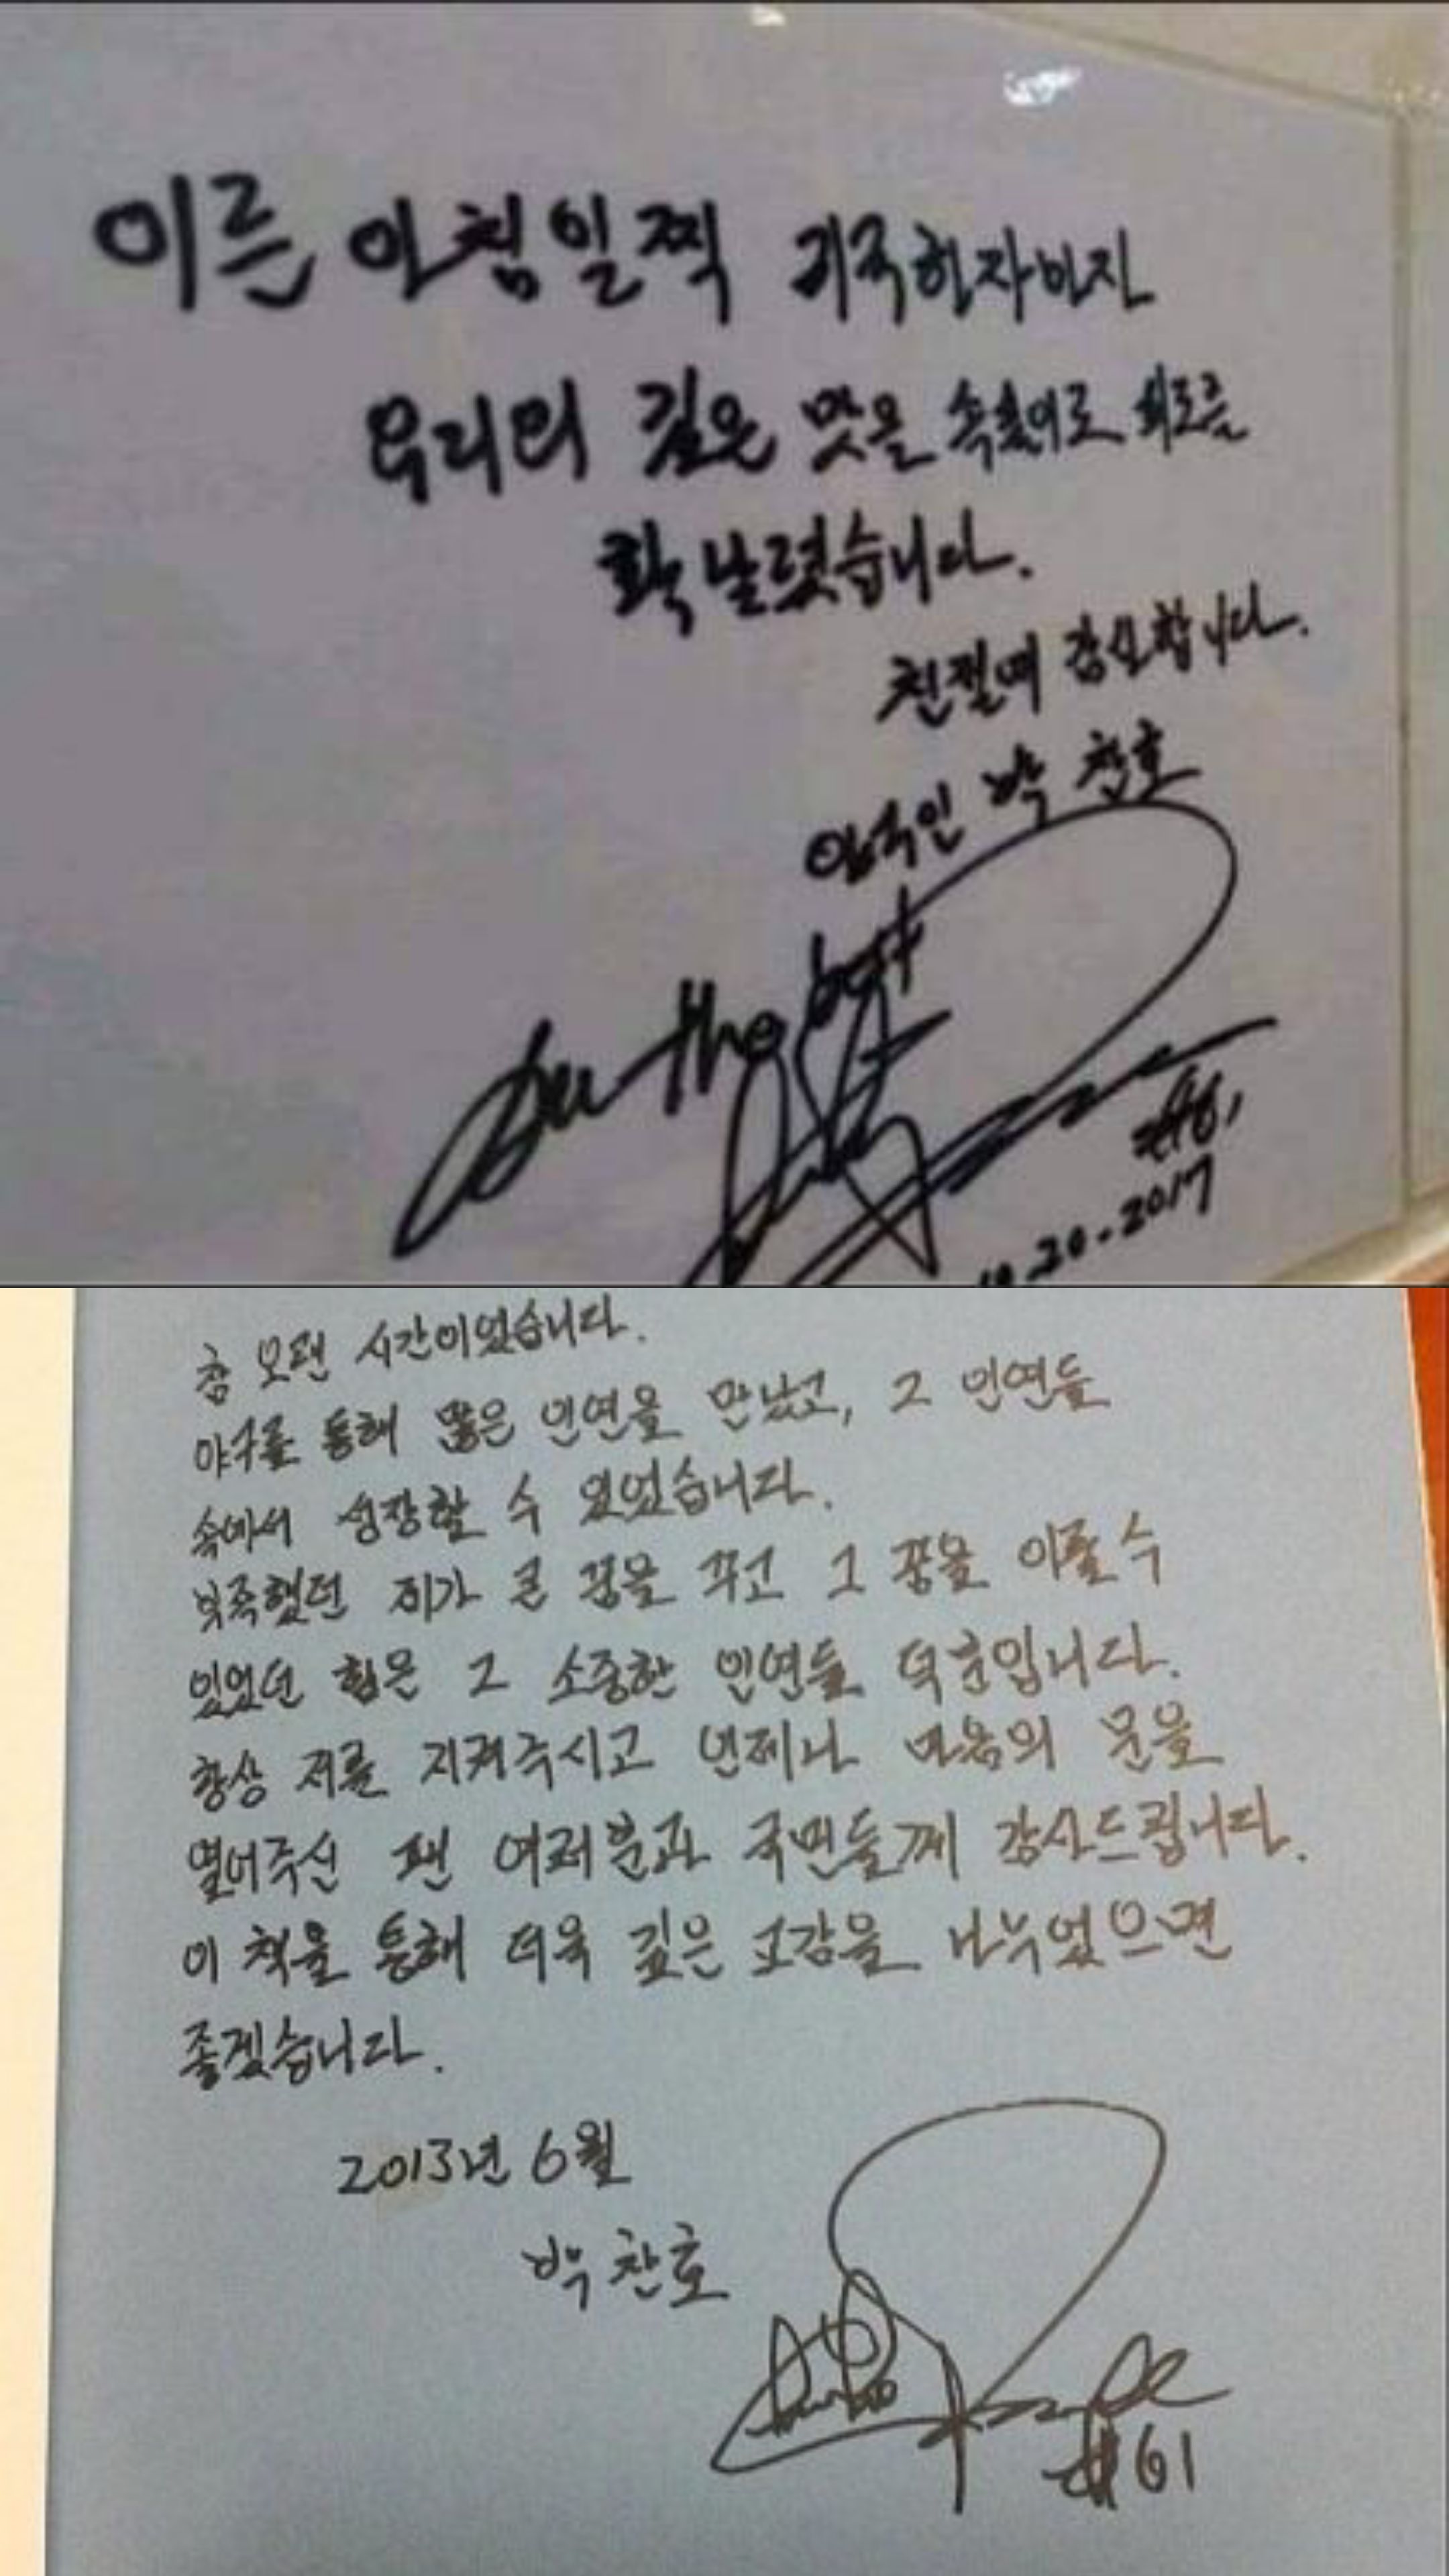 이른 아침일찍 귀국하자마자
우리의 깊은 맛을 속으로 피로를
확 날렸습니다.
친절에 감사합니다.
입국인 박 찬호
the best
#61
10.20.2017
참 오랜 시간이었습니다.
야구를 통해 많은 인연을 만났고, 그 인연들
속에서 성장할 수 있었습니다.
부족했던 제가 큰 꿈을 꾸고 그 꿈을 이룰 수
있었던 힘은 그 소중한 인연들 덕분입니다.
항상 저를 지켜주시고 언제나 마음의 문을
열어주신 팬 여러분과 국민들께 감사드립니다.
이 책을 통해 더욱 깊은 교감을 나누었으면
좋겠습니다.
2013년 6월
박찬호
#61